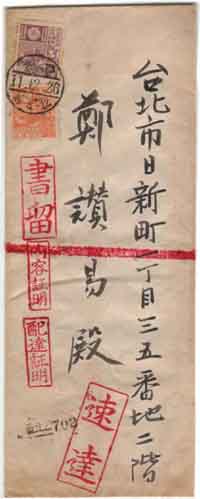 台北市日新町一丁目三五番地二階
鄭讚易殿
11.12.26
書留
内容証明
配達証明
速達
702